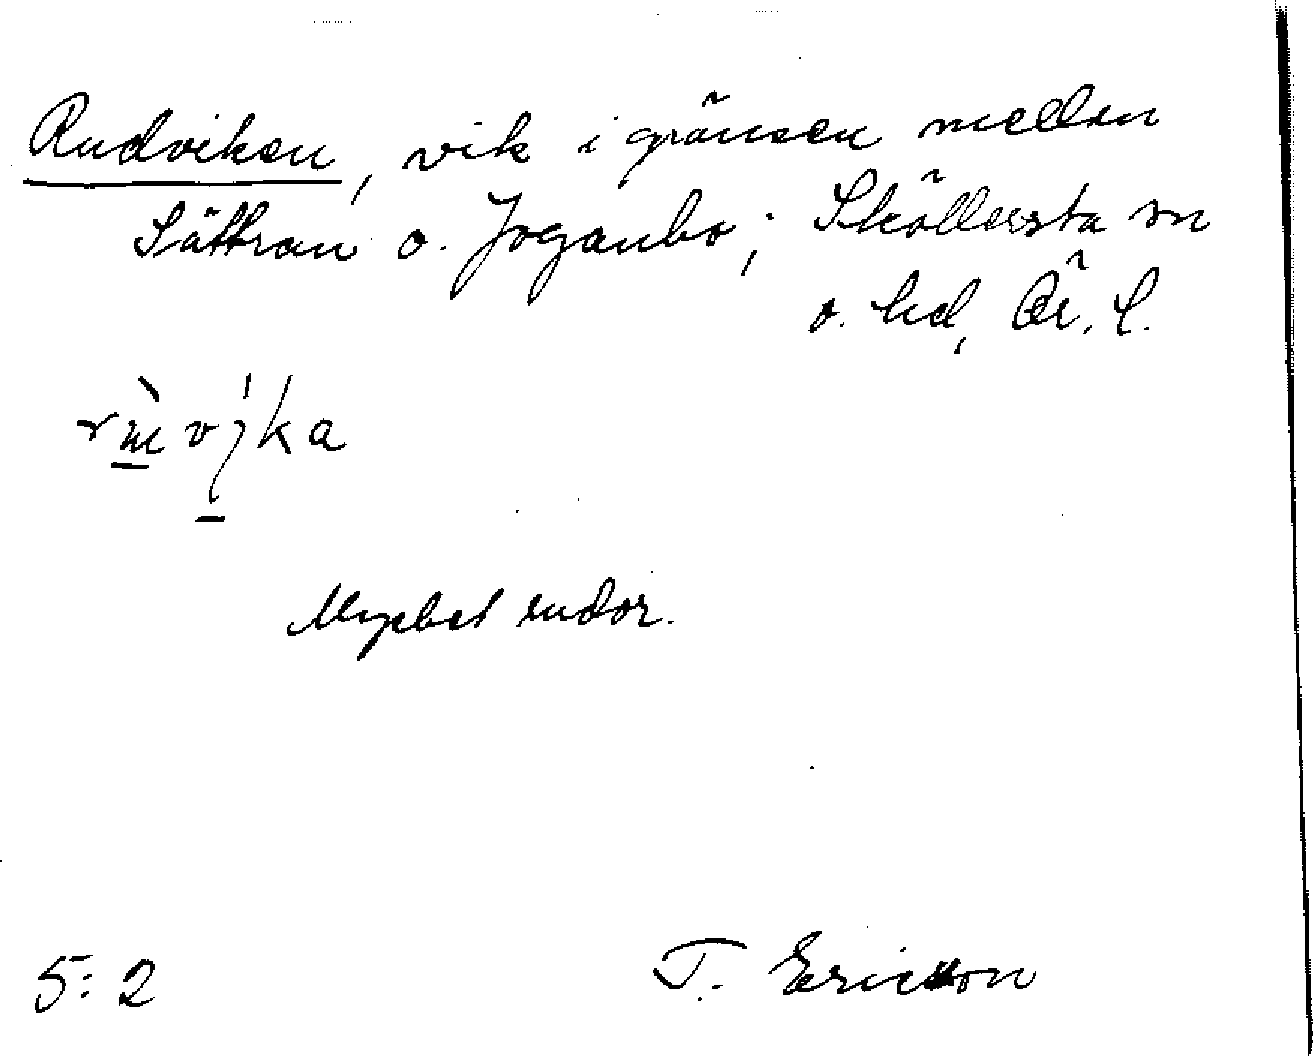 Rudviken, vik i gränsen mellan
Sättran o. Joganbo; Sköllersta sn
o. hd, Ör. l.
Mycket rudor.
5:2
T. Ericsson